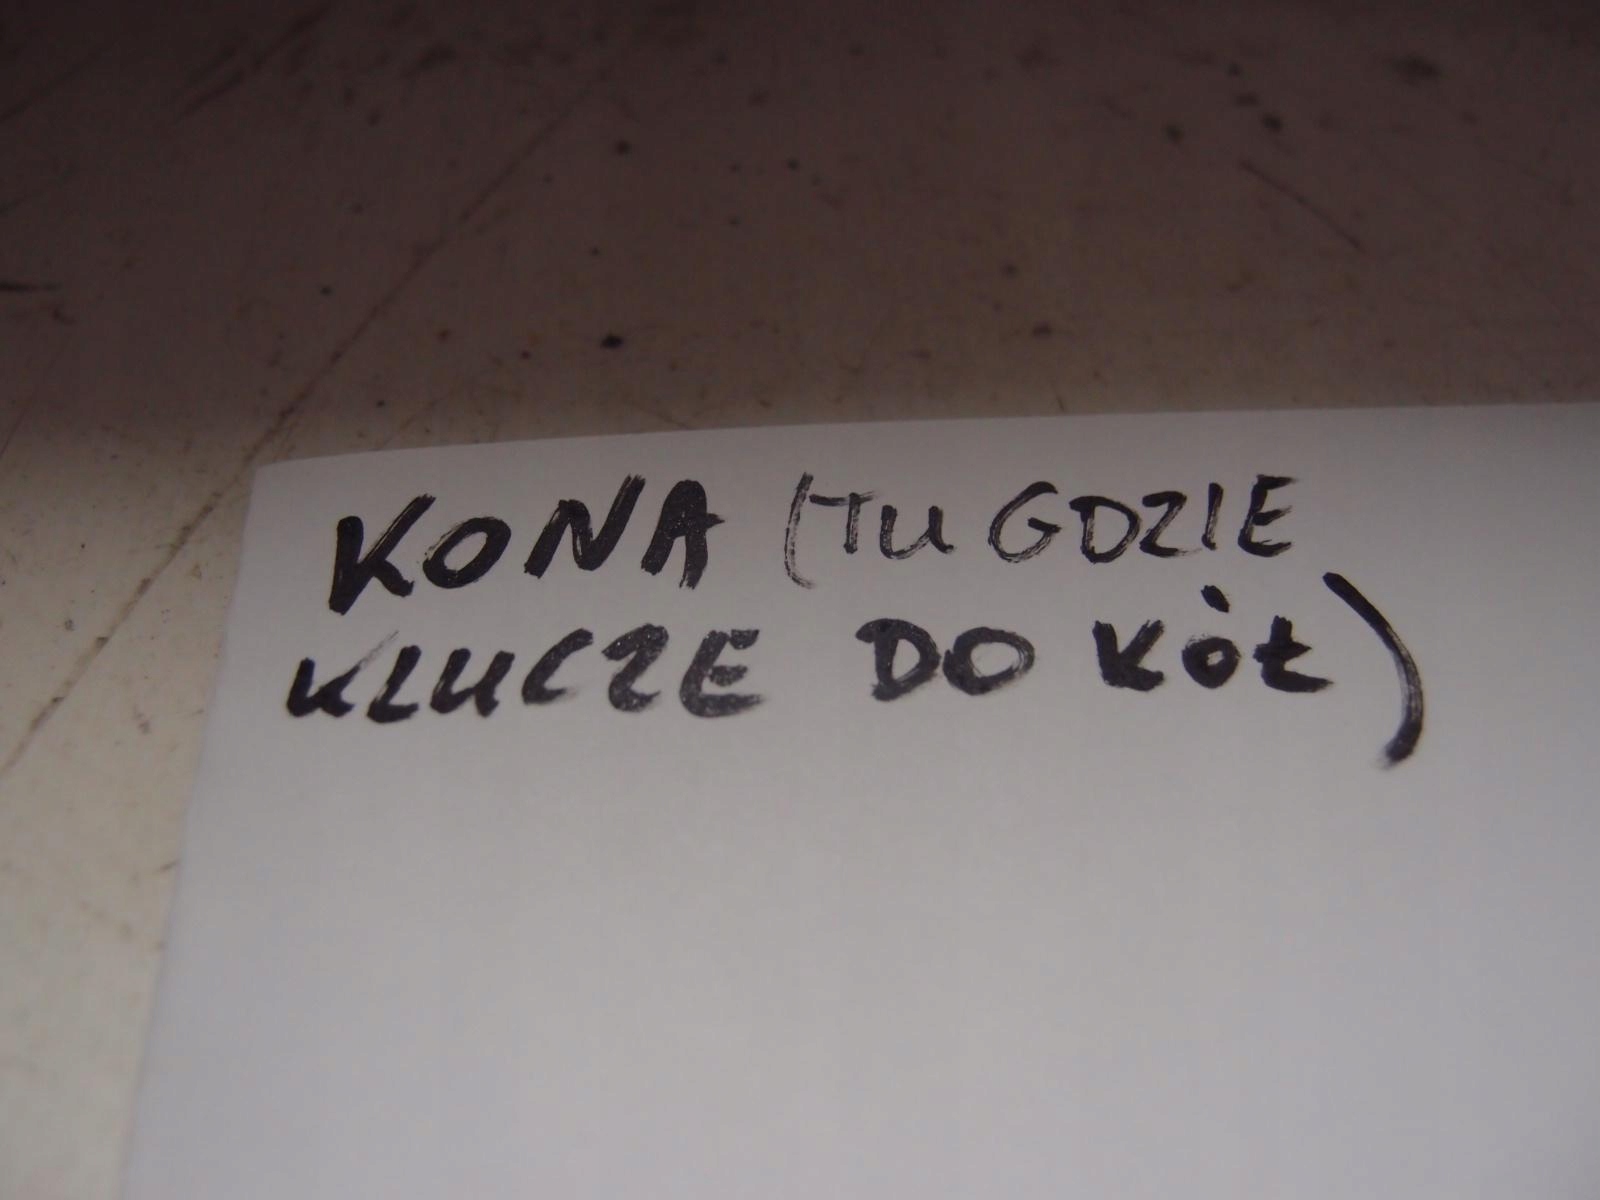 KONA (TU GDZIE
KLUCZE DO KÓŁ)